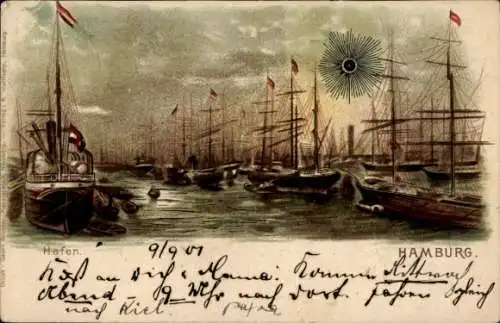 Hafen.
HAMBURG.
9/9 01
an Dich & Mama. Komme Mittwoch
Abend 9 Uhr nach dort. fahren sogleich
nach Kiel. Papa